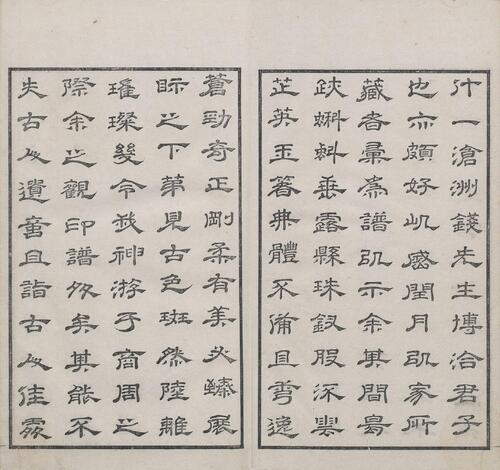 什一滄洲錢先生博洽君子
也亦頗好此閏月以家所
藏者彙為譜以示余其間鳥
跡蝌蚪垂露縣珠釵股深雲
芝英玉箸體不備且逸
蒼勁奇正剛柔有美必臻展
眎之下第見古色斑然陸離
璀璨幾令我神游于商周之
際余之觀印譜多矣其能不
失古人遺意且詣古人佳處